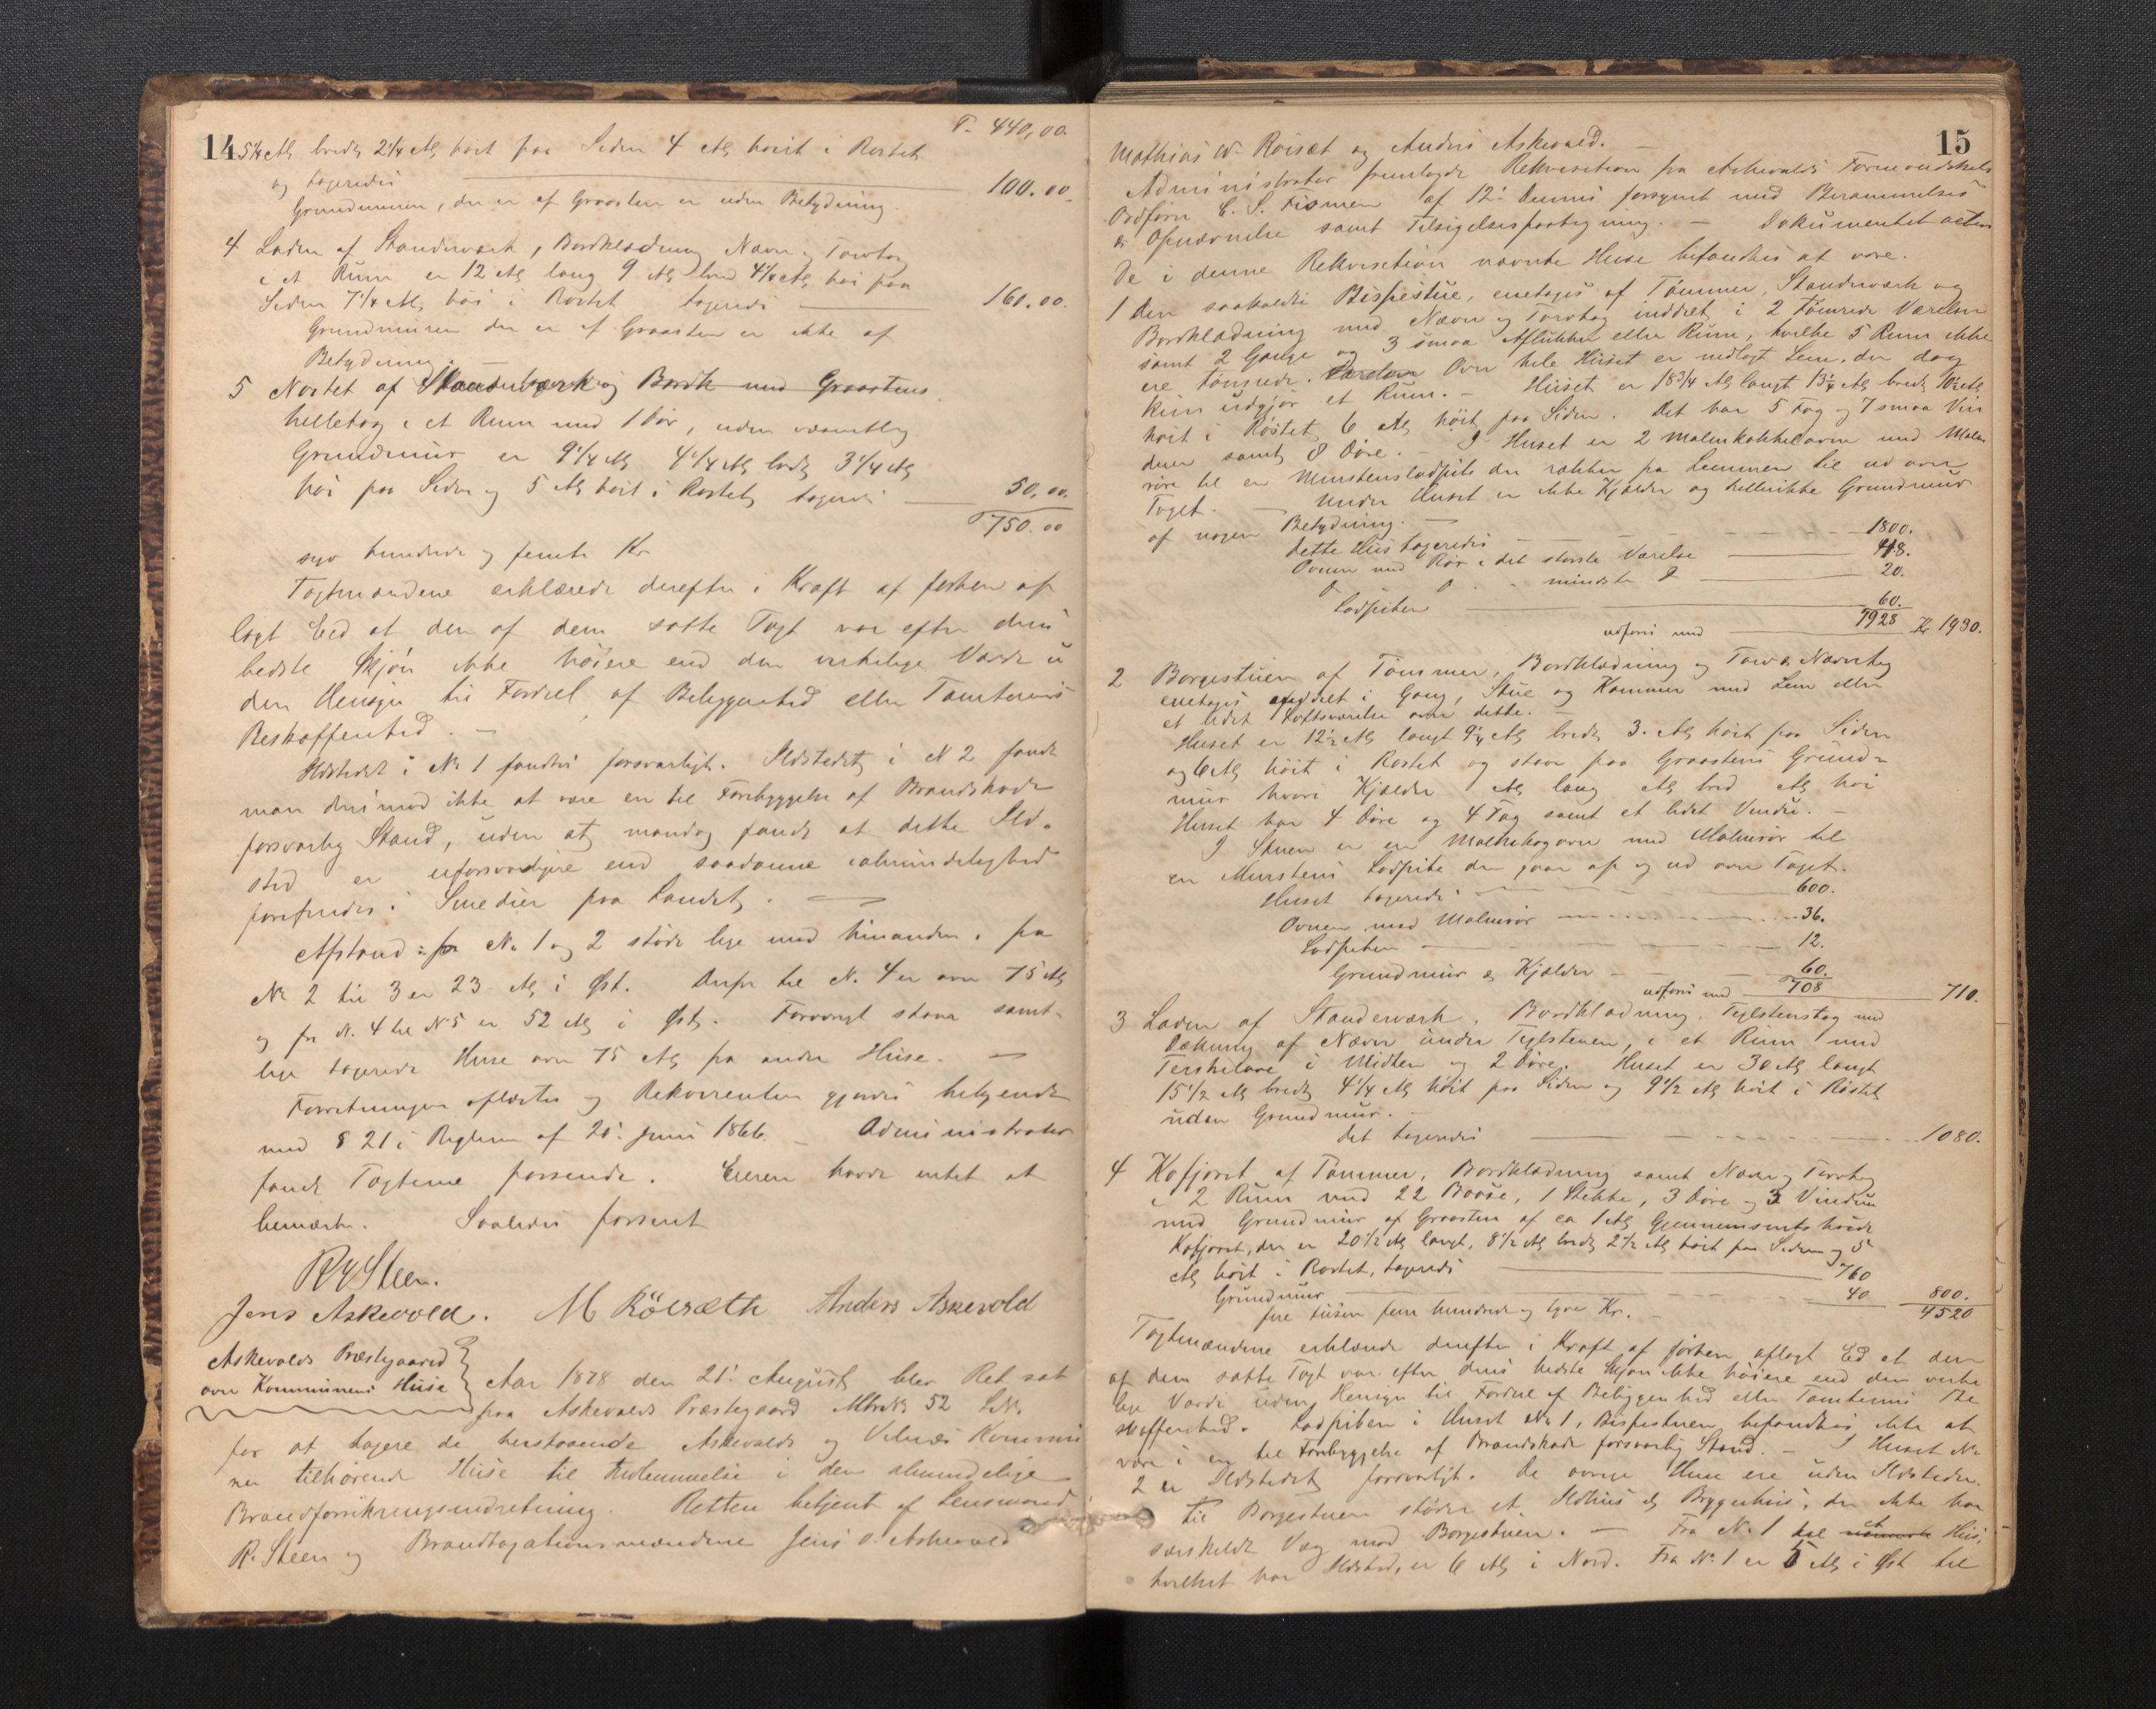 14
T. 440,00.
5 1/4 Al, bredt, 2 1/4 Al, høit paa Siden 4 Al, høit i Røstet
og taxeredes 100.00.
Grundmuren, der er af Graasten er uden Betydning.
4 Laden af Standerværk, Bordklædning Næver og Torvtag
i et Rum er 12 Al, lang 9 Al, bred 4 1/4 Al, høi paa
Siden 7 1/4 Al, høi i Røstet taxeredes 160.00.
Grundmuren der er af Graasten er ikke af
Betydning. —
5 Nøstet af Standerværk og Bordk med Graastens
helletag i et Rum med 1 Dør, uden væsentlig
Grundmur er 9 1/4 Al, 4 1/4 Al, bredt, 3 1/4 Al,
høi paa Siden og 5 Al, høit i Røstet, taxeredes 50,00.
T 750.00
syv hundrede og femti Kr
Taxtmændene erklærede derefter i Kraft af forhen af
lagt Eed at den af dem satte Taxt var efter deres
bedste Skjøn ikke høiere end den virkelige Værdi u
den Hensyn til Fordeel af Beliggenhed eller Tomternes
Beskaffenhed. —
Ildstedet i No 1 fandtes forsvarligt. Ildstedet, i N 2 fandt
man derimod ikke at være en til Forebyggelse af Brandskade
forsvarlig Stand, uden at, mandog fandt at dette Ild-
sted er uforsvarligere end saadanne i almindelighed
forefindes i Smedier paa Landet, . —
Afstand: fra No 1 og 2 støde lige mod hinanden. fra
No 2 til 3 er 23 Al, i Øst. Derfra til N. 4 er over 75 Al,
og fra N. 4 til No 5 er 52 Al, i Øst,. Forøvrigt staar samt-
lige taxerede Huse over 75 Al, fra andre Huse. —
Forretningen oplæstes og Rekvirenten gjordes bekjendt
med § 21 i Reglem af 20. Juni 1866. — Administrator
fandt Taxterne passende. Eieren havde intet at
bemærke. Saaledes passeret
R Steen.
Jens Askevold. M Röisæth Anders Askevold
Askevolds Præstegaard
over Kommunens Huse } Aar 1878 den 21. August, blev Ret sat
paa Askevolds Præstegaard Mtr No 52 LNo
for at taxere de herstaaende Askevolds og Vilnæs Kommu
ner tilhørende Huse til Indlemmelse i den almindelige
Brandforsikringsindretning. Retten betjent af Lensmand
R. Steen og Brandtaxationsmændene Jens O. Askevold
15
Mathias W. Röisæt og Anders Askevold. —
Administrator fremlagde Rekvisition fra Askevolds Formandskabs
Ordfører E. S. Fismen af 12. Dennes forsynet med Berammelses
& Opnævnelse samt Tilsigelsespaategning. — Dokumentet acten
De i denne Rekvisition nævnte Huse befandtes at være.
1 Den saakaldte Bispestue, enetages af Tømmer, Standerværk og
Bordklædning med Næver og Torvtag inddelt, i 2 Tømrede Værelser
samt 2 Gange og 3 smaa Aflukker eller Rum, hvilke 5 Rum ikke
ere tømrede. Værelser Over hele Huset er nedlagt Lem, der dog
kun udgjør et Rum. — Huset er 18 3/4 Al, langt 13 1/4 Al, bredt, 10 1/2 Al,
høit i Røstet, 6 Al, høit paa Siden. Det har 5 Fag og 7 smaa Vin
duer samt, 8 Døre. — I Huset er 2 Malmkakkelovne med Malm
rør til en Murstenslodpibe der rækker fra Lemmen til ud over
Taget. — Under Huset er ikke Kjælder og hellerikke Grundmur
af nogen Betydning. —
Dette Hus taxeredes 1800.
Ovnen med Rør i det største Værelse 48.
D D mindste D 20.
Lodpiben 60.
T 1928
udføres med Kr 1930.
2 Borgestuen af Tømmer, Bordklædning og Torv & Nævertag
enetages inddelt i Gang, Stue og Kammer med Lem eller
et lidet Loftsværelse over dette. —
Huset er 12 1/2 Al, langt 9 1/4 Al, bredt, 3. Al, høit paa Siden
og 6 Al, høit i Røstet og staar paa Graastens Grund-
mur hvori Kjælder Al, lang Al, bred Al, høi
Huset har 4 Døre og 4 Fag samt et lidet Vindu. —
I Stuen er en Malmkogovn med Malmrør til
en Murstens Lodpibe der gaar op og ud over Taget.
Huset taxeredes 600.
Ovnen med Malmrør 36.
Lodpiben 12.
Grundmur & Kjælder 60.
T 708
udføres med 710.
3 Laden af Standerværk, Bordklædning, Teglstenstag med
Dækning af Næver under Teglstenen, i et Rum med
Terskelave i Midten og 2 Døre. Huset er 30 Al, langt
15 1/2 Al, bredt, 4 1/4 Al, høit paa Siden og 9 1/2 Al, høit i Røstet
uden Grundmur. —
Det taxeredes 1080.
4 Kofjøset af Tømmer, Bordklædning samt Næver og Torvtag
i 2 Rum med 22 Baase, 1 Stikke, 3 Døre og 3 Vinduer
med Grundmur af Graasten af ca 1 Al, Gjennemsnitshøide
Kofjøset, der er 20 1/2 Al, langt, 8 1/2 Al, bredt, 2 1/2 Al, høit paa Siden og 5
Al, høit i Røstet, taxeredes 760
Grundmur 40 800.
fire tusen fem hundrede og tyve Kr. — 4520
Taxtmændene erklærede derefter i Kraft af forhen aflagt Ed at den
af dem satte Taxt var efter deres bedste Skjøn ikke høiere end den virke
lige Værdi uden Hensyn til Fordeel af Beliggenhed eller Tomternes Be
skaffenhed. Lodpiben i Huset No 1, Bispestuen befandtes ikke at
være i en til Forebyggelse af Brandskade forsvarlig Stand. — I Huset No
2 er Ildstedet, forsvarligt. De øvrige Huse ere uden Ildsteder.
Til Borgestuen støder et Ildhus el, Bryggerhus, der ikke har
særskildt Væg mod Borgestuen. — Fra N. 1 til et Hus,
hvilket har Ildsted, er 6 Al, i Nord. Fra No 1 er 5 Al, i Øst til